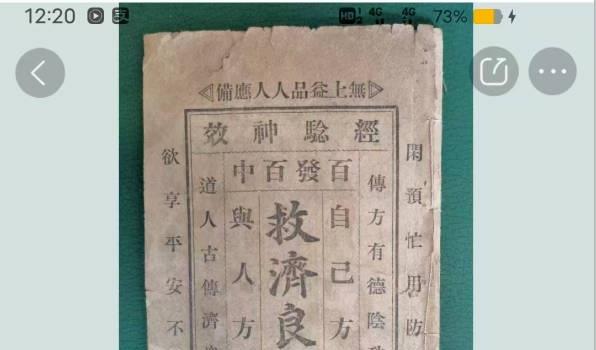 12:20
HD 1 2 4G 4G 73%
無上益品人人應備
經騐神效
百發百中
閑預忙用防
傳方有德陰
自己方
救濟良
與人方
道人古傳濟
欲享平安不